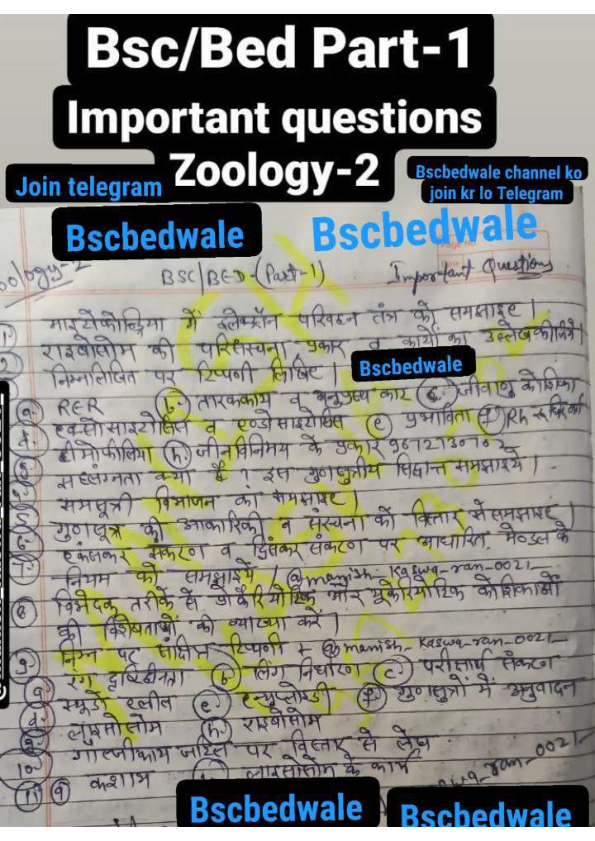 Bsc/Bed Part-1
Important questions
Zoology-2
Join telegram
Bscbedwale channel ko
join kr lo Telegram
Bscbedwale
Bscbedwale
BSC/BED-(Part-1) Important Questions
1. माइटोकोन्ड्रिया में इलेक्ट्रॉन परिवहन तंत्र को समझाइए।
2. राइबोसोम की परिसंरचना प्रकार व कार्यों का उल्लेख कीजिये।
3. निम्नलिखित पर टिप्पणी लिखिए।
Bscbedwale
a. RER b. तारककाय व c. जीवाणु कोशिका
d. एक्सोसाइटोसिस व एण्डोसाइटोसिस e प्रभाविता f. Rh
हीमोफीलिया h. जीन विनिमय के प्रकार
सहलग्नता क्या है? इस गुणसूत्रीय सिद्धान्त समझाइये।
समसूत्री विभाजन को समझाइए।
गुणसूत्र की आकारिकी व संरचना को विस्तार से समझाइए।
एकसंकर संकरण व द्विसंकर संकरण पर आधारित मेण्डल के
नियम को समझाइये। @manish_kaswa_ran_0021_
8 विभेदक तरीके से प्रोकैरियोटिक और यूकेरियोटिक कोशिकाओं
की विशेषताओं की व्याख्या करें।
9. निम्न पर संक्षिप्त टिप्पणी @manish_kaswa_ran_0021_
a रंग दृष्टिहीनता b लिंग निर्धारण c. परीक्षार्थ संकरण
d. e. f गुणसूत्रों में अनुवादन
लाइसोसोम h. राइबोसोम
10. गाल्जीकाय जटिल पर विस्तार से लेख
11 a कशाभ लाइसोसोम के कार्य
Bscbedwale
Bscbedwale